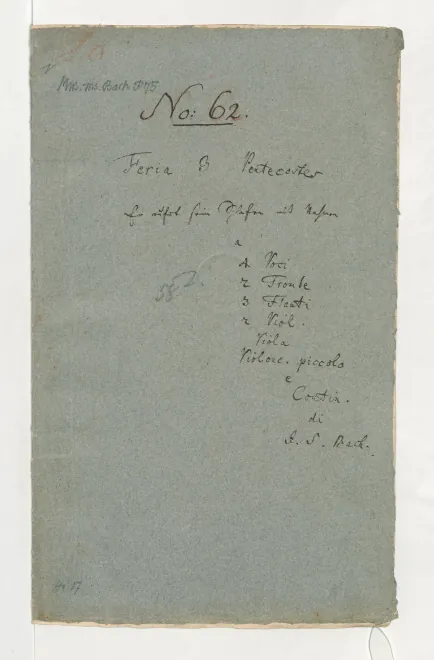 Mus. ms. Bach P 75
No: 62.
Feria 3 Pentecostes
Er rufet seine Schafen mit Nahmen
a
4 Voci
2 Trombe
3 Flauti
2 Viol.
Viola
Violonc. piccolo
e
Contin.
di
J. S. Bach.
58